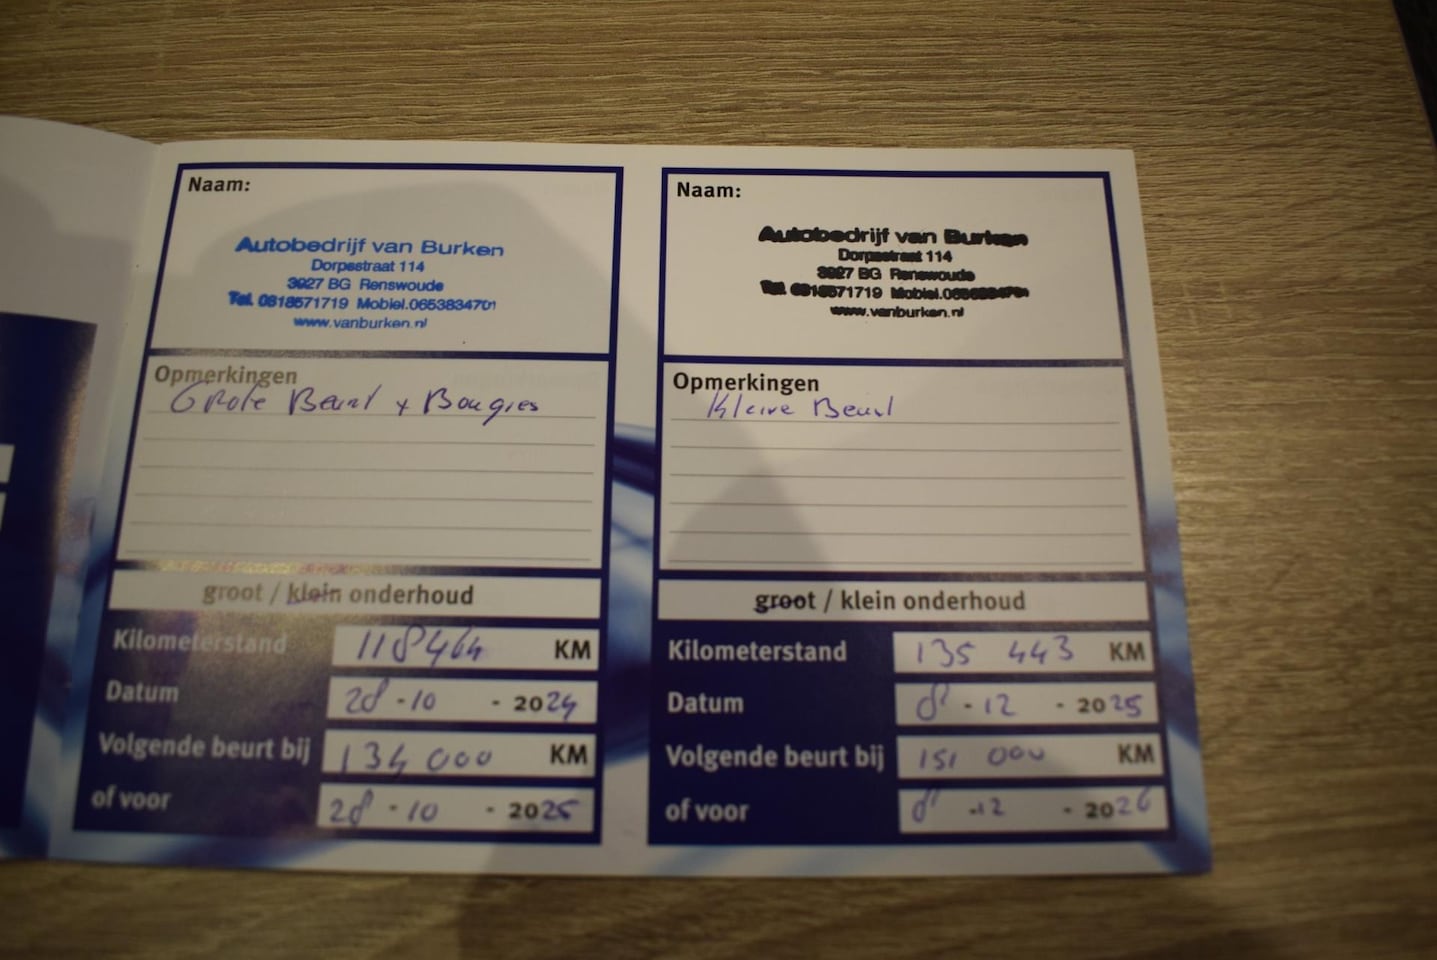 Naam:
Autobedrijf van Burken
Dorpsstraat 114
3927 BG Renswoude
Tel. 0318571719 Mobiel.0653834701
www.vanburken.nl
Opmerkingen
Grote Beurt + Bougies
groot / klein onderhoud
Kilometerstand 118464 KM
Datum 28 - 10 - 2024
Volgende beurt bij 134 000 KM
of voor 28 - 10 - 2025
Naam:
Autobedrijf van Burken
Dorpsstraat 114
3927 BG Renswoude
Tel. 0318571719 Mobiel.0653834701
www.vanburken.nl
Opmerkingen
Kleine Beurt
groot / klein onderhoud
Kilometerstand 135 443 KM
Datum 8 - 12 - 2025
Volgende beurt bij 151 000 KM
of voor 8 - 12 - 2026